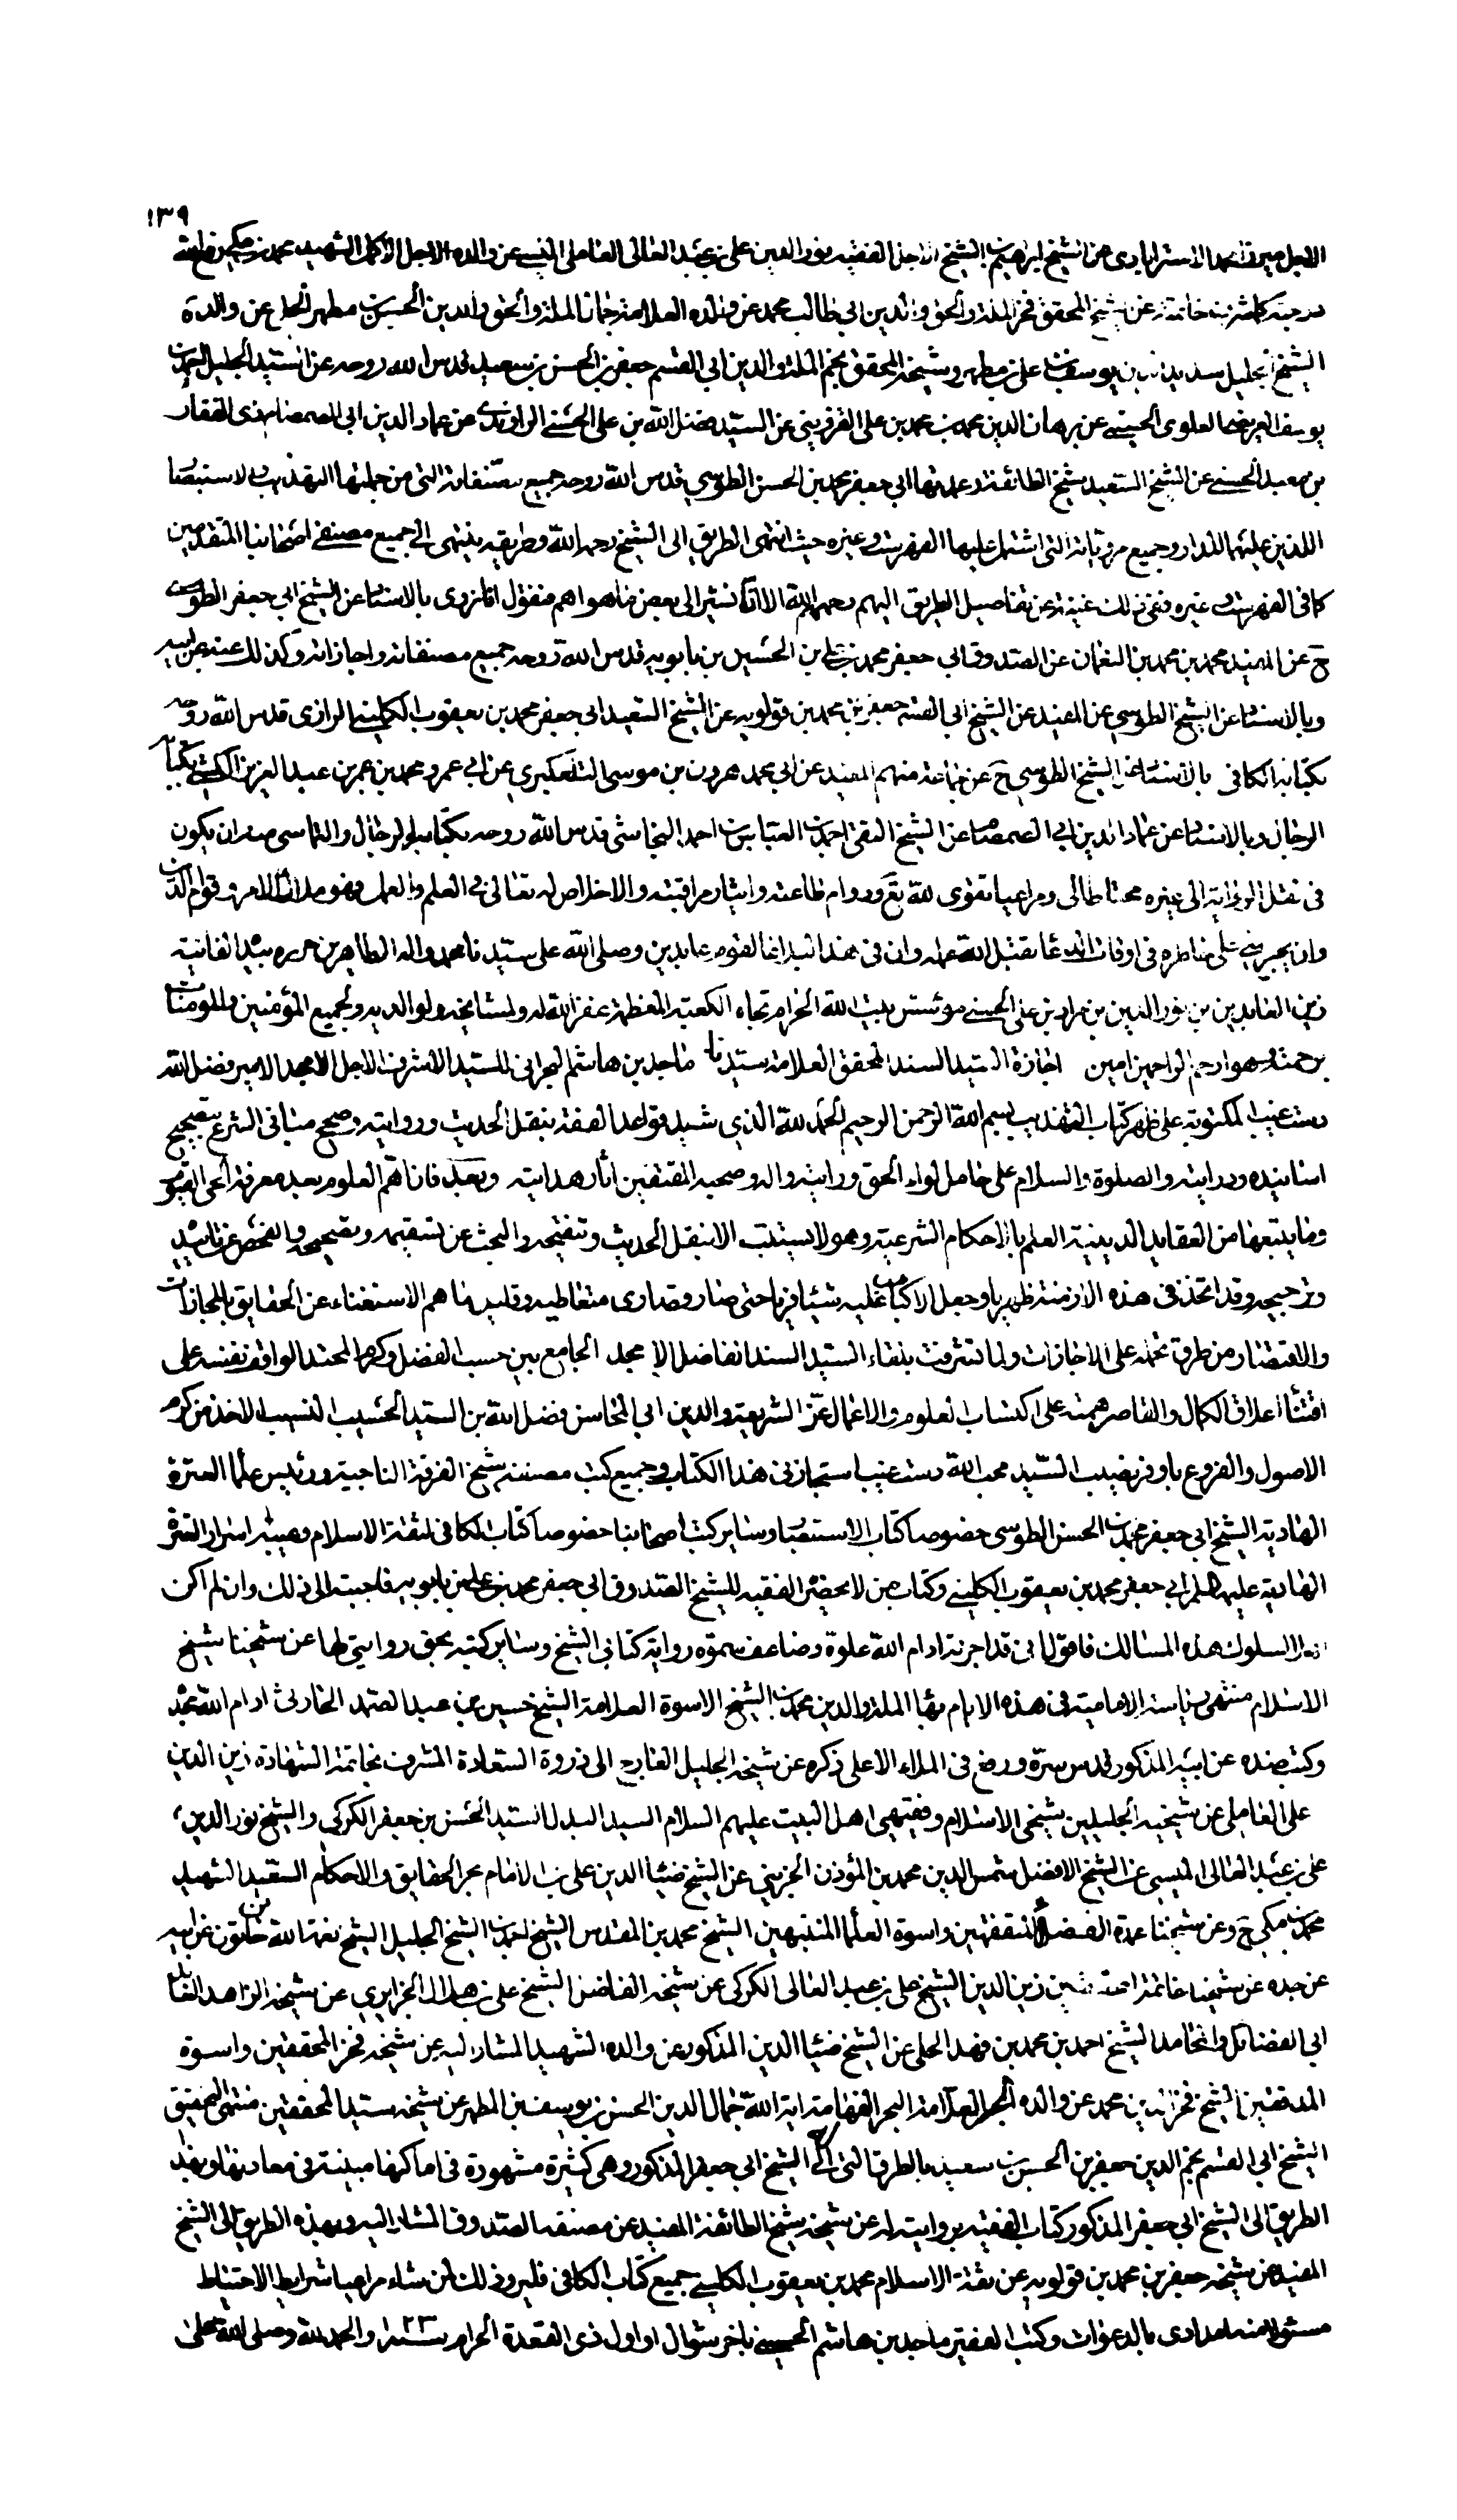 ١٣٩
الاجل ميرزا محمد الاسترابادى عن الشيخ ابرهيم بن الشيخ الاجل الفقيه نور الدين على بن عبد العالى العاملى الميسى عن والده الاجل الاكمل الشهيد محمد بن مكى رفع الله
درجته كما شرف خاتمته عن شيخه المحقق فخر الملة والحق والدين ابى طالب محمد عن والده العلامة جمال الملة والحق والدين الحسن بن مطهر الحلى عن والده
الشيخ الجليل سديد الدين يوسف بن على بن مطهر وشيخه المحقق نجم الملة والدين ابى القسم جعفر بن الحسن بن سعيد قدس الله روحه عن السيد الجليل احمد بن
يوسف العريضى العلوى الحسينى عن برهان الدين محمد بن محمد بن على القزوينى عن السيد فضل الله بن على الحسنى الراوندى عن عماد الدين ابى الصمصام ذى الفقار
بن معبد الحسنى عن الشيخ السعيد شيخ الطائفة وعمدتها ابى جعفر محمد بن الحسن الطوسى قدس الله روحه جميع مصنفاته التى من جملتها التهذيب والاستبصار
اللذين عليهما المدار وجميع مروياته التى اشتمل عليها الفهرست وغيره حيث انتهى الطريق الى الشيخ رحمه الله وطريقه ينتهى الى جميع مصنفى اصحابنا المتقدمين
كما فى الفهرست وغيره ففى ذلك غنية عن تفاصيل الطريق اليهم رحمهم الله الا انا نشير الى بعض ما هو اهم فنقول انا نروى بالاسناد عن الشيخ ابى جعفر الطوسى
ح عن المفيد محمد بن محمد بن النعمان عن الصدوق ابى جعفر محمد بن على بن الحسين بن بابويه قدس الله روحه جميع مصنفاته واجازاته وكذلك عنه عن ابيه
وبالاسناد عن الشيخ الطوسى عن المفيد عن الشيخ ابى القسم جعفر بن محمد بن قولويه عن الشيخ السعيد ابى جعفر محمد بن يعقوب الكلينى الرازى قدس الله روحه
بكتابه الكافى بالاسناد عن الشيخ الطوسى ح عن جماعة منهم المفيد عن ابى محمد هرون بن موسى التلعكبرى عن ابى عمرو محمد بن عمر بن عبد العزيز الكشى بكتاب
الرجال وبالاسناد عن عماد الدين ابى الصمصام عن الشيخ التقى احمد بن العباس بن احمد النجاشى قدس الله روحه بكتابه الرجال والتماسى منه ان يكون
فى نقل الرواية الى غيره محتاطا لى ومراعيا تقوى لله تع ودوام طاعته وايثار مراقبته والاخلاص له تعالى فى العلم والعمل فهو ملاك الامر وقوام الدين
وان يجرينى على خاطره فى اوقات الدعا تقبل الله عمله وان فى هذا لبلاغا لقوم عابدين وصلى الله على سيدنا محمد واله الطاهرين حرره بيده الفانية
زين العابدين بن نور الدين بن مراد بن على الحسنى مؤسس بيت الله الحرام تجاه الكعبة المعظمة غفر الله له ولمشايخه ولوالديه ولجميع المؤمنين والمومنات
برحمته وهو ارحم الراحمين امين اجازة السيد السند المحقق العلامة سيدنا ماجد بن هاشم البحرانى للسيد الاشرف الاجل الامجد الامير فضل الله
دست غيب المكتوبة على ظهر كتاب التهذيب بسم الله الرحمن الرحيم الحمد لله الذى شيد قواعد الفقه بنقل الحديث وروايته وصحح مبانى الشرع بتصحيح
اسانيده ودرايته والصلوة والسلام على حامل لواء الحق ورايته واله وصحبه المقتفين آثار هدايته وبعد فان اهم العلوم بعد معرفة الحى القيوم
وما يتبعها من العقايد الدينية العلم بالاحكام الشرعية وهو لا يستتب الا بنقل الحديث وتنقيحه والبحث عن تسقيمه وتصحيحه والفحص عن تاييده
وترجيحه وقد اتخذ فى هذه الازمنة ظهريا وجعل الاكباب عليه شيئا فريا حتى صار قصارى متعاطيه وقليل ما هم الاستغناء عن الحقايق بالمجازات
والاقتصار من طرق تحمله على الاجازات ولما تشرفت بلقاء السيد السند الفاضل الامجد الجامع بين حسب الفضل وكرم المحتد الواقف نفسه على
اقتناء اعلاق الكمال والقاصر همته على اكتساب العلوم والاعمال عز الشريعة والدين ابى المحاسن فضل الله بن السيد الحسيب النسيب الاخذ من كرم
الاصول والفروع باوفر نصيب السيد محب الله دست غيب استجازنى هذا الكتاب وجميع كتب مصنفه شيخ الفرقة الناجية ورئيس علما العترة
الهادية الشيخ ابى جعفر محمد بن الحسن الطوسى خصوصا كتاب الاستبصار وساير كتب اصحابنا خصوصا كتاب الكافى لثقة الاسلام وعيبة اسرار العترة
الهادية عليهم السلام ابى جعفر محمد بن يعقوب الكلينى وكتاب من لا يحضره الفقيه للشيخ الصدوق ابى جعفر محمد بن على بن بابويه فاجبته الى ذلك وان لم اكن
اهلا لسلوك هذه المسالك فاقول انى قد اجزته ادام الله علوه وضاعف سموه رواية كتابى الشيخ وساير كتبه بحق روايتى لها عن شيخنا شيخ
الاسلام منتهى رياسة الامامية فى هذه الايام بهاء الملة والدين محمد بن الشيخ الاسوة العلامة الشيخ حسين بن عبد الصمد الحارثى ادام الله مجده
وكبت ضده عن ابيه المذكور قدس سره ورفع فى الملاء الاعلى ذكره عن شيخه الجليل العارج الى ذروة السعادة المشرف بخاتمة الشهادة زين الدين
على العاملى عن شيخيه الجليلين شيخى الاسلام وفقيهى اهل البيت عليهم السلام السيد البدل السيد الحسن بن جعفر الكركى والشيخ نور الدين
على بن عبد العالى الميسى عن الشيخ الافضل شمس الدين محمد بن المؤذن الجزينى عن الشيخ ضياء الدين على بن الامام بحر الحقايق والاحكام السعيد الشهيد
محمد بن مكى ح وعن شيخنا عمدة الفضلاء المتفقهين واسوة العلما المتنبهين الشيخ محمد بن المقدس الشيخ احمد بن الشيخ الجليل الشيخ نعمة الله بن خاتون عن ابيه
عن جده عن شيخه خاتمة زين الدين الشيخ على بن عبد العالى الكركى عن شيخه الفاضل الشيخ على بن هلال الجزايرى عن شيخه الزاهد العابد
ابى الفضائل والمحامد الشيخ احمد بن محمد بن فهد الحلى عن الشيخ ضياء الدين المذكور عن والده الشهيد المشار اليه عن شيخه فخر المحققين واسوة
المدققين الشيخ فخر الدين محمد عن والده الحبر العلامة البحر الفهامة اية الله جمال الدين الحسن بن يوسف بن المطهر عن شيخه سيد المحققين منتهى التحقيق
الشيخ ابى القسم نجم الدين جعفر بن الحسن بن سعيد بالطرق التى له الى الشيخ ابى جعفر المذكور وهى كثيرة مشهورة فى اماكنها مبينة فى معادنها وبهذا
الطريق الى الشيخ ابى جعفر المذكور كتاب الفقيه بروايته له عن شيخه شيخ الطائفة المفيد عن مصنفه الصدوق المشار اليه وبهذه الطريق الى الشيخ
المفيد عن شيخه جعفر بن محمد بن قولويه عن ثقة الاسلام محمد بن يعقوب الكلينى جميع كتاب الكافى فليرو ذلك لمن شاء مراعيا شرايط الاحتياط
مسئولا منه امدادى بالدعوات وكتب الفقير ماجد بن هاشم الحسينى باخر شوال او اول ذى القعدة الحرام سنة ١٠٢٣ والحمد لله وصلى الله على